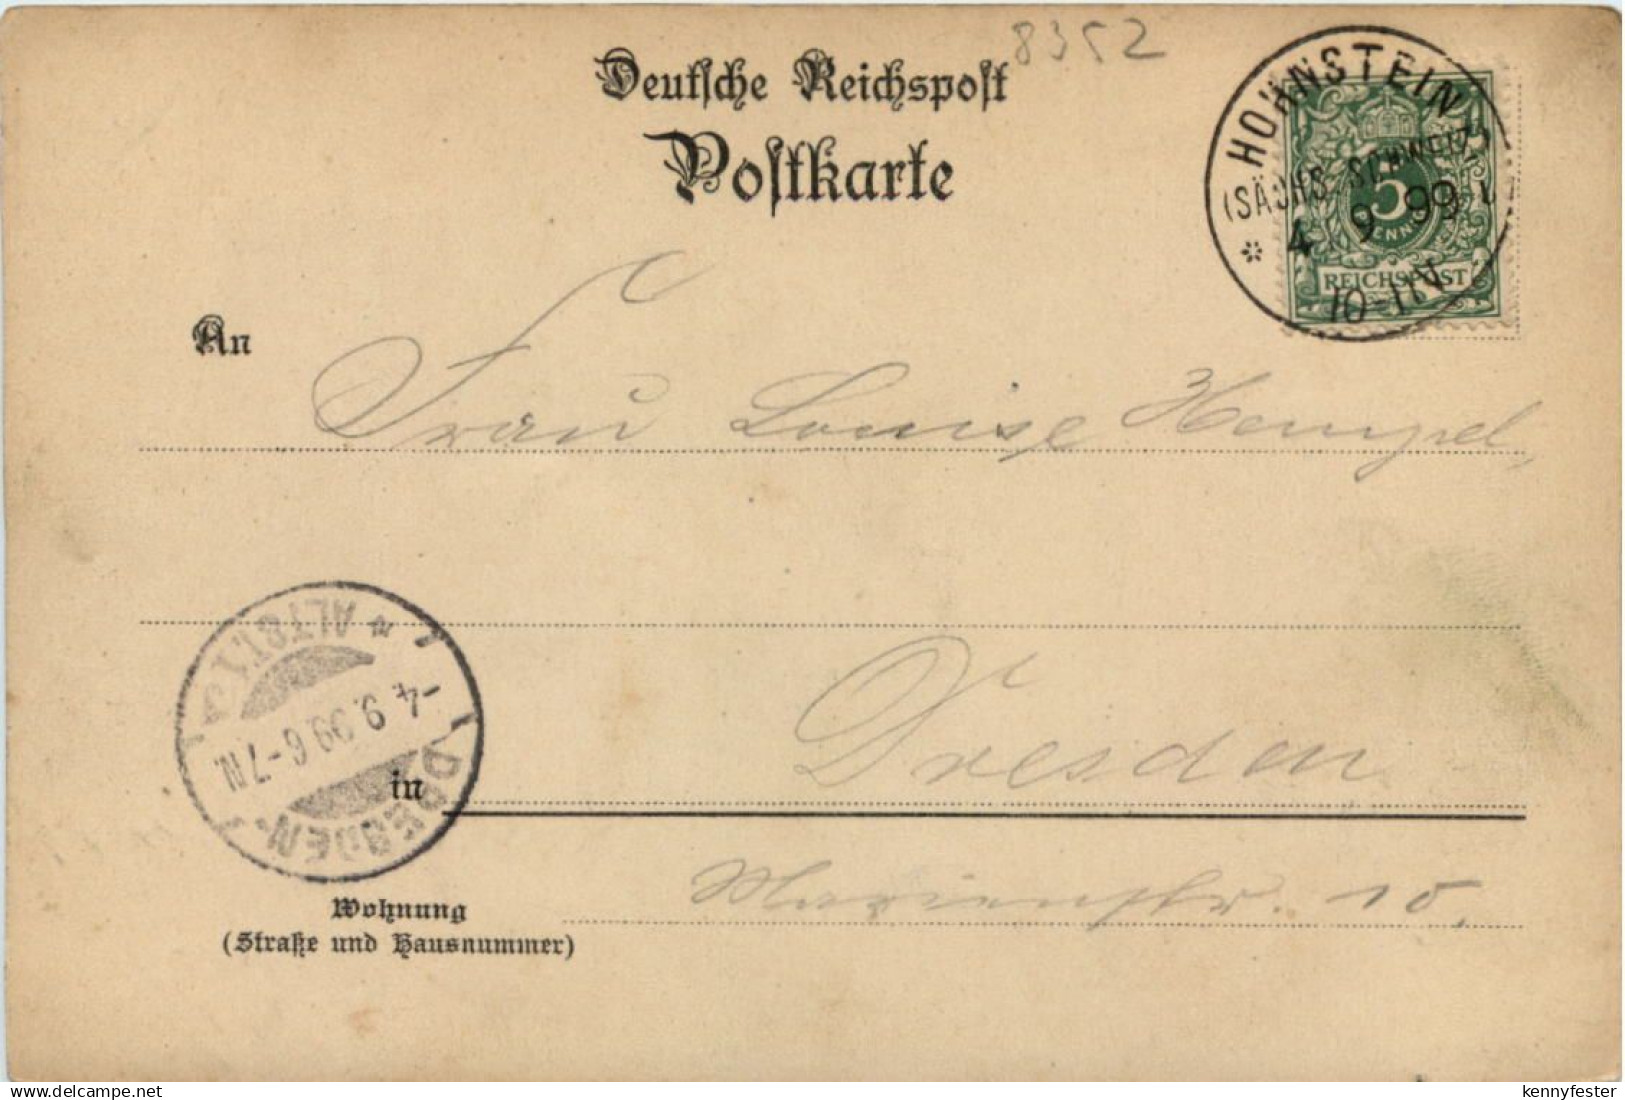 8352
Deutsche Reichspost
Postkarte
HOHNSTEIN
(SÄCHS. SCHWEIZ)
4 9 99
10-11V
5
PFENNIG
REICHSPOST
An
Frau Louise Hempel,
ALTST. 1
-4. 9. 99. 6-7 N.
DRESDEN-
in
Dresden
Wohnung
(Straße und Hausnummer)
Marienstr. 10.
delcampe.net
kennyfester